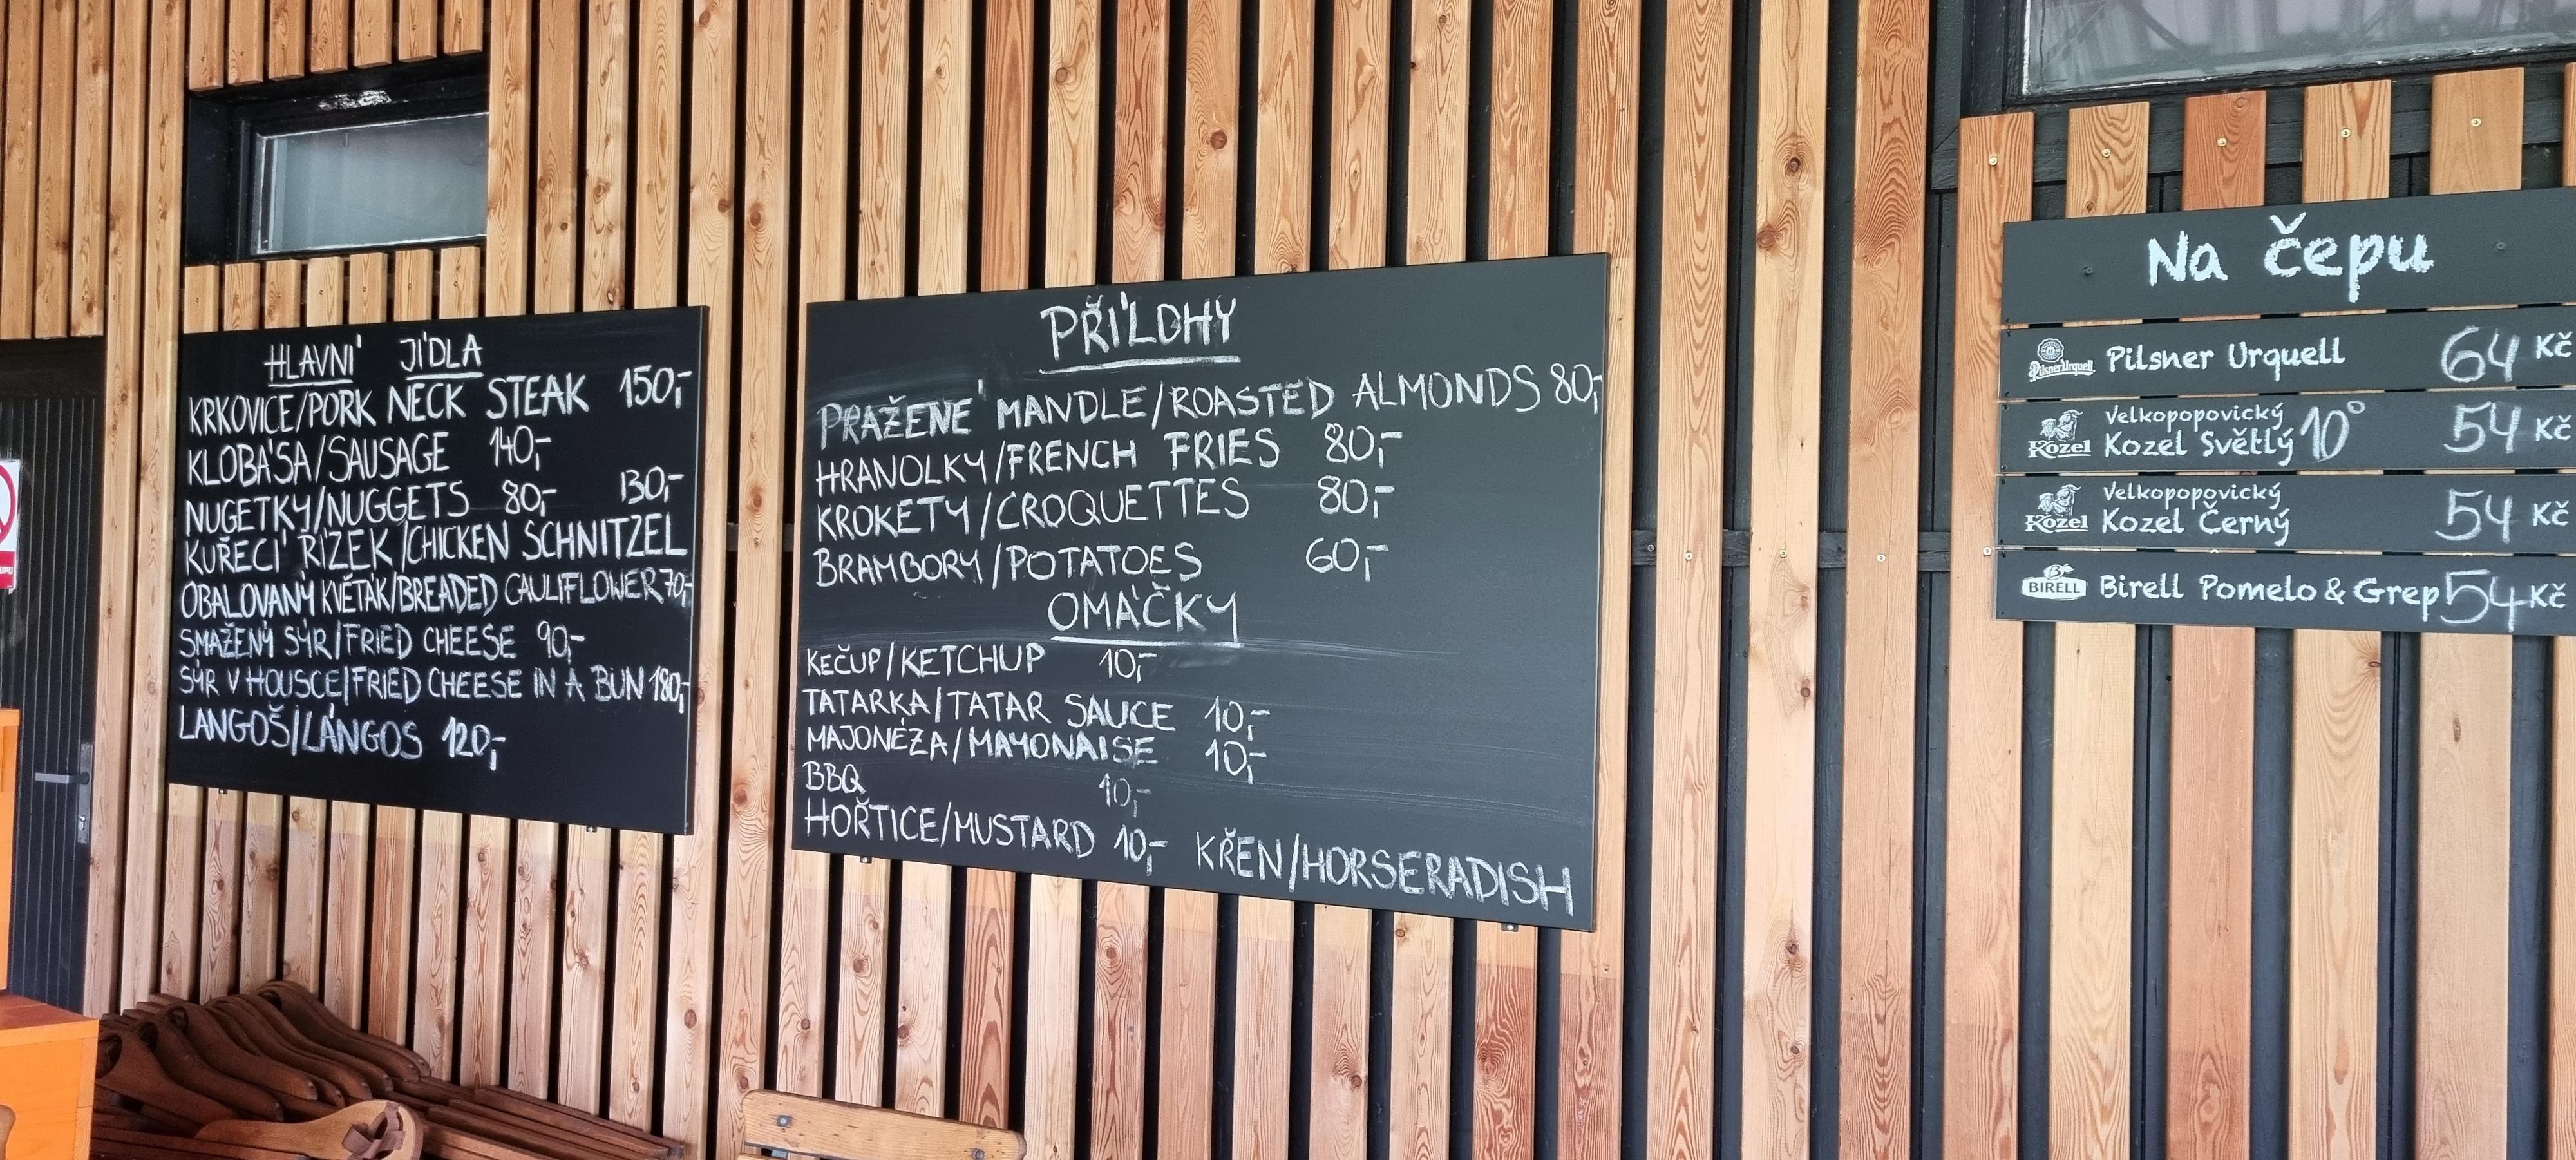 HLAVNÍ JÍDLA
KRKOVICE/PORK NECK STEAK 150,-
KLOBÁSA/SAUSAGE 140,-
NUGETKY/NUGGETS 80,- 130,-
KUŘECÍ ŘÍZEK/CHICKEN SCHNITZEL
OBALOVANÝ KVĚTÁK/BREADED CAULIFLOWER 70,-
SMAŽENÝ SÝR/FRIED CHEESE 90,-
SÝR V HOUSCE/FRIED CHEESE IN A BUN 180,-
LANGOŠ/LÁNGOS 120,-
PŘÍLOHY
PRAŽENÉ MANDLE/ROASTED ALMONDS 80,-
HRANOLKY/FRENCH FRIES 80,-
KROKETY/CROQUETTES 80,-
BRAMBORY/POTATOES 60,-
OMÁČKY
KEČUP/KETCHUP 10,-
TATARKA/TATAR SAUCE 10,-
MAJONÉZA/MAYONAISE 10,-
BBQ 10,-
HOŘTICE/MUSTARD 10,- KŘEN/HORSERADISH
Na čepu
Pilsner Urquell Pilsner Urquell 64 Kč
Velkopopovický
Kozel Kozel Světlý 10° 54 Kč
Velkopopovický
Kozel Kozel Černý 54 Kč
BIRELL Birell Pomelo & Grep 54 Kč